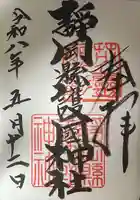 奉拝
静岡縣護國神社
令和八年五月十二日